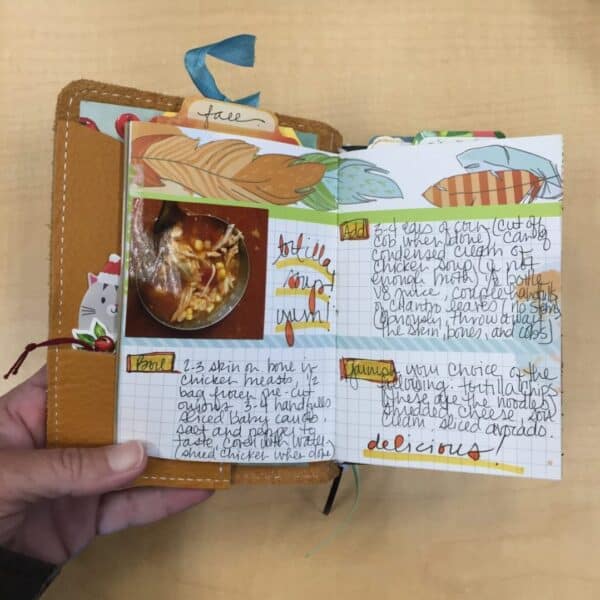 fall
tortilla
soup!
yum!
Boil 2-3 skin on bone in
chicken breasts, 1/2
bag frozen pre-cut
onions, 3-4 handfulls
sliced baby carrots,
salt and pepper to
taste, cover with water
(shred chicken when done)
Add 3-4 ears of corn (cut off
cob when done), can of
condensed cream of
chicken soup (if not
enough broth) 1/2 bottle
V8 juice, couple handfuls
of cilantro leaves / no stems
(obviously, throw away
the skin, bones, and cobs)
Garnish your choice of the
following: tortilla chips
(these are the noodles)
shredded cheese, sour
cream, sliced avocados.
delicious!